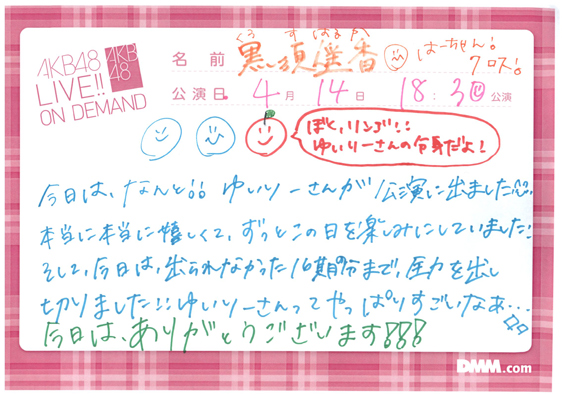 AKB48
LIVE!!
ON DEMAND
AKB
48
くろ す はるか
名前 黒須遥香 はーちゃん!
クロス!
公演日 4月14日 18:30 公演
ぼく、リンゴ!!
ゆいりーさんの分身だよ!
今日は、なんと!! ゆいりーさんが公演に出ました!!
本当に本当に嬉しくて、ずっとこの日を楽しみにしていました!
そして、今日は、出られなかった16期の分まで、全力を出し
切りました!!ゆいりーさんってやっぱりすごいなぁ...
今日は、ありがとうございます!!!
DMM.com